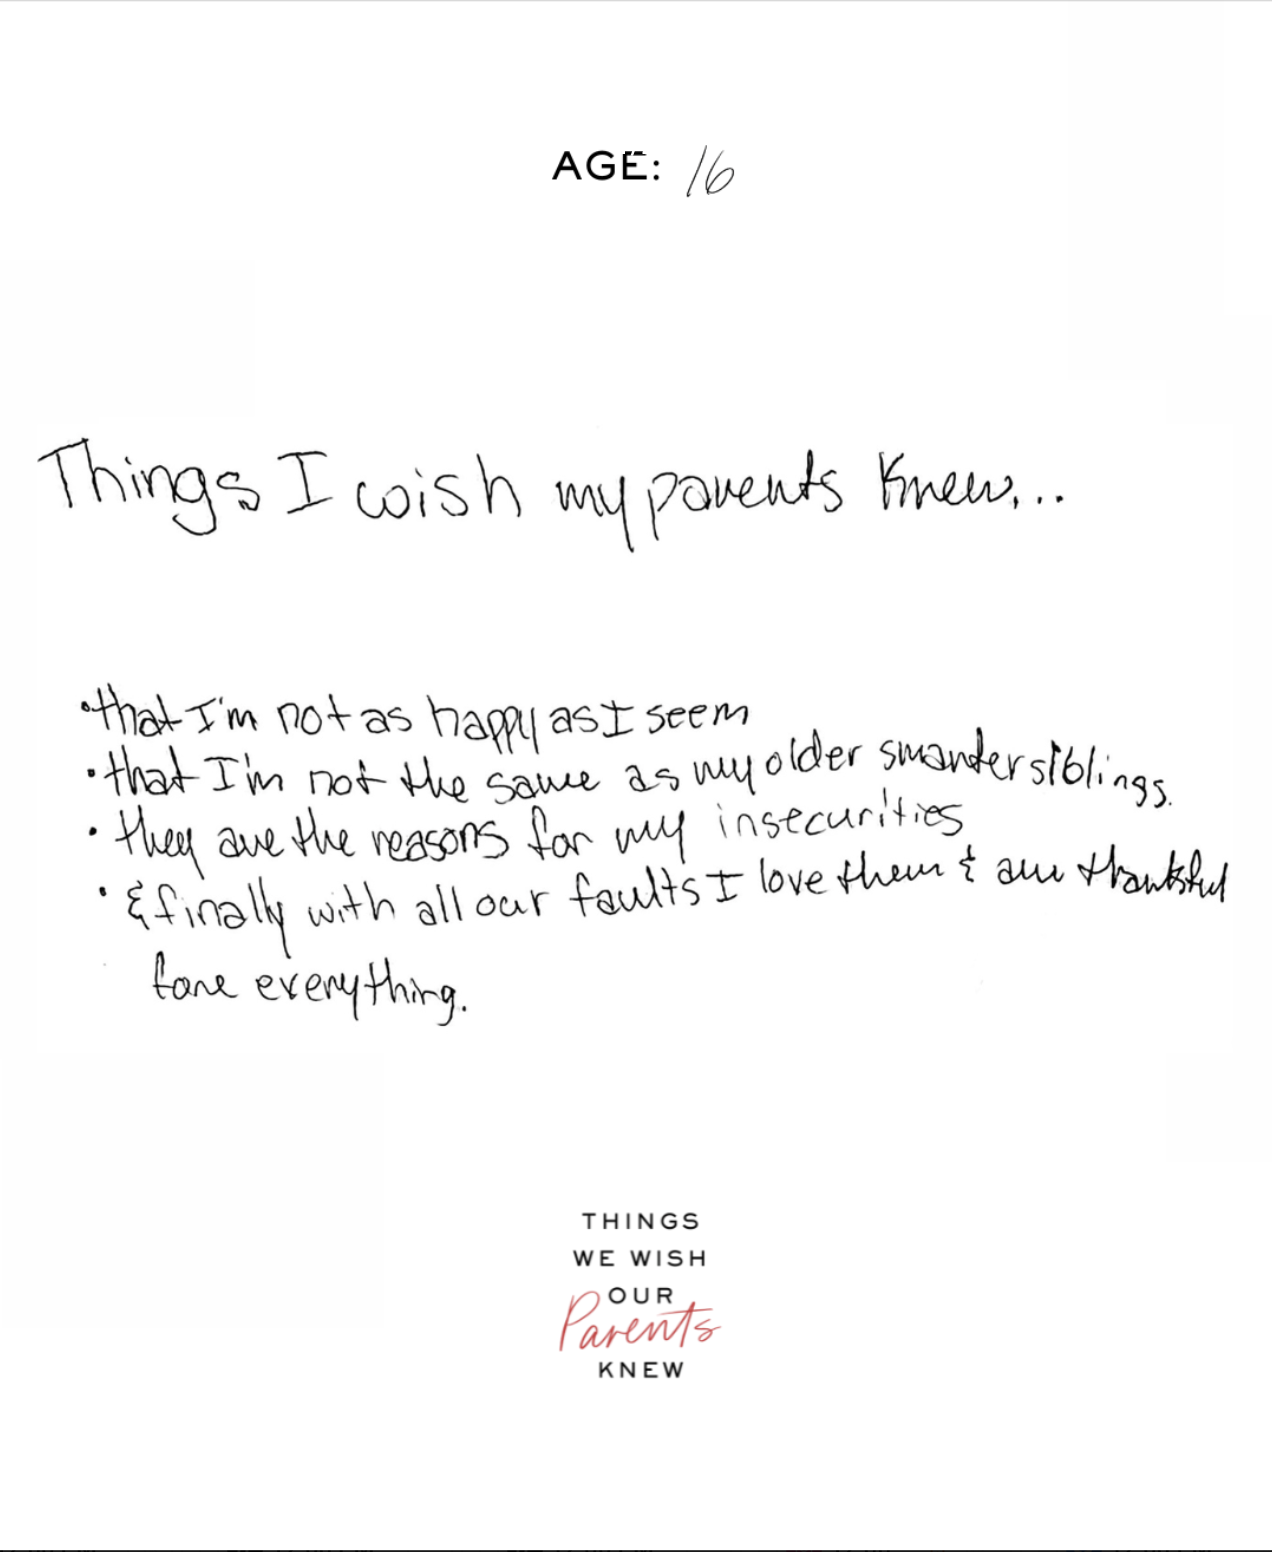 AGE: 16
Things I wish my parents knew...
•that I'm not as happy as I seem
•that I'm not the same as my older smarter siblings.
• they are the reasons for my insecurities
• & finally with all our faults I love them & am thankful
fore everything.
THINGS
WE WISH
OUR
Parents
KNEW